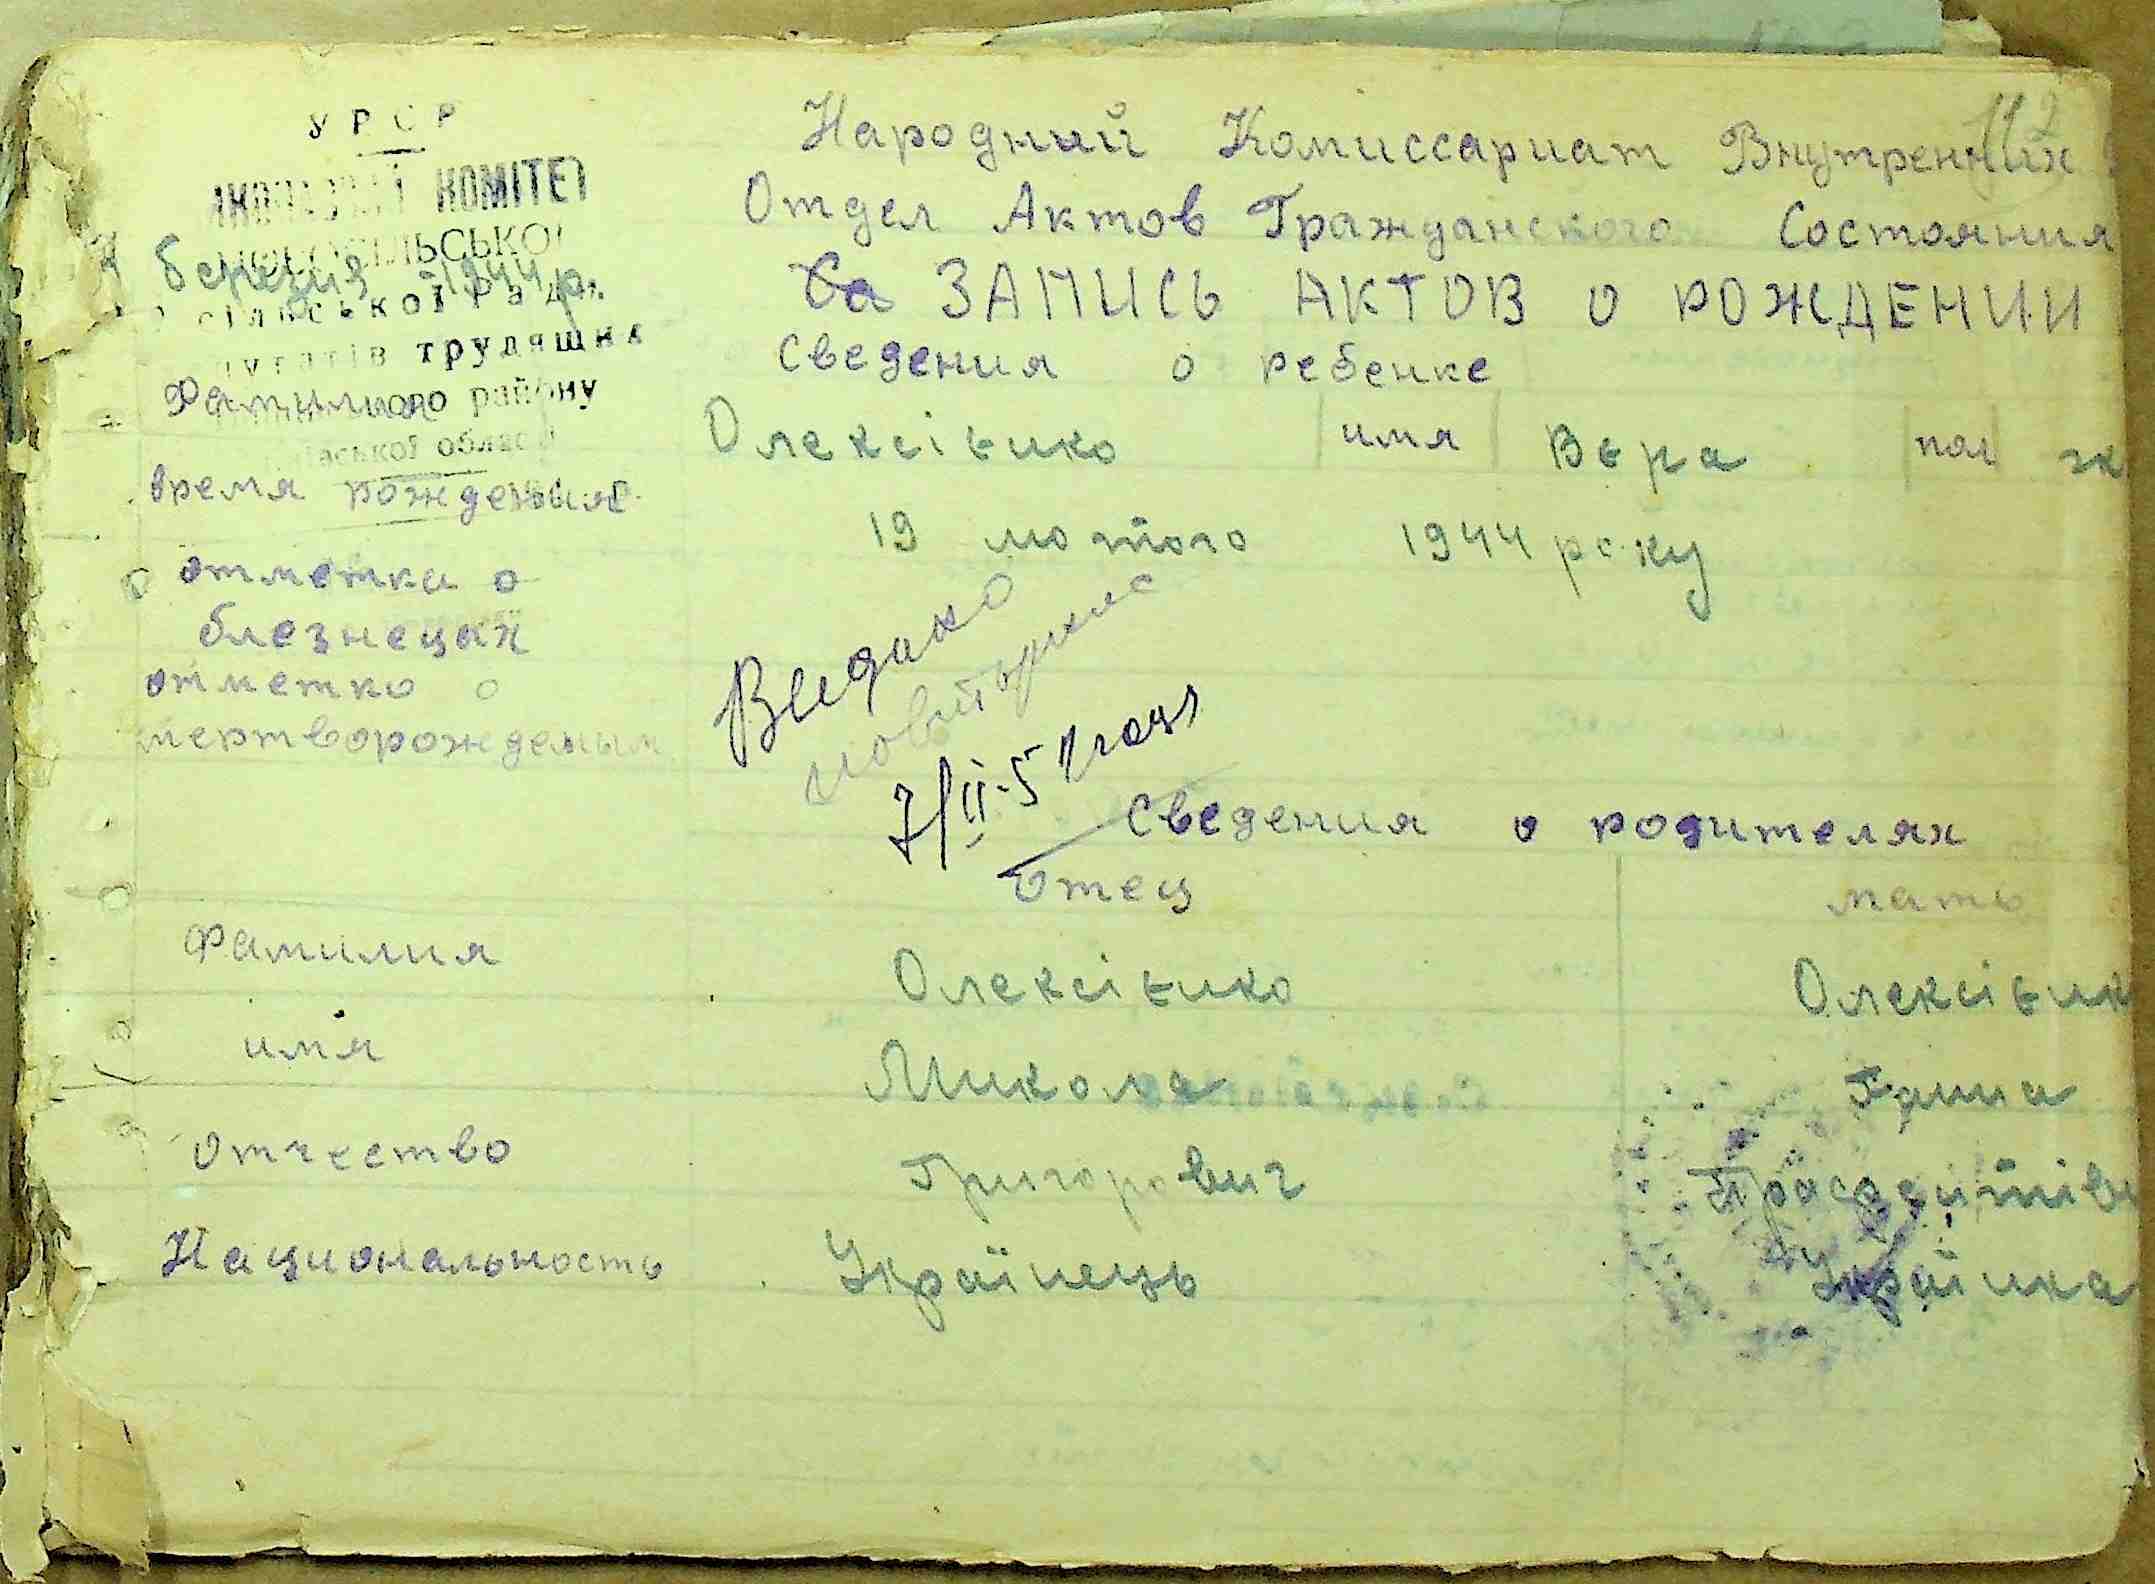 112
УРСР
КОМІТЕТ
березня 1944 р.
трудящих
району
Народный Комиссариат Внутренних
Отдел Актов Гражданского Состояния
ЗАПИСЬ АКТОВ О РОЖДЕНИИ
Сведения о ребенке
Фамилия Олексієнко имя Вера пол ж
время рождения 19 лютого 1944 року
отметка о
блезнецах
отметка о
мертворожденым
Видано
повторно
7/II-51 года
Сведения о родителях
Отец мать
Фамилия Олексієнко Олексієнк
имя Микола Ганна
Отчество Григорович
Национальность Українець Українка